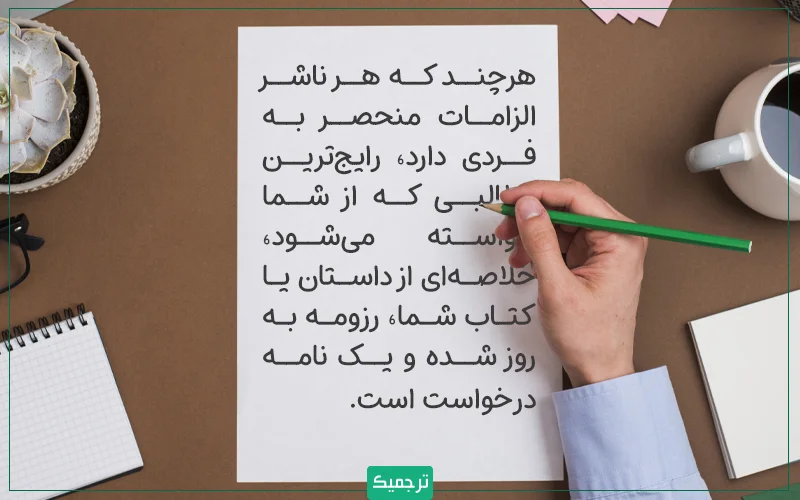 هرچند که هر ناشر
الزامات منحصر به
فردی دارد، رایج‌ترین
که از شما
می‌شود،
خلاصه‌ای از داستان یا
کتاب شما، رزومه به
روز شده و یک نامه
درخواست است.
ترجمیک